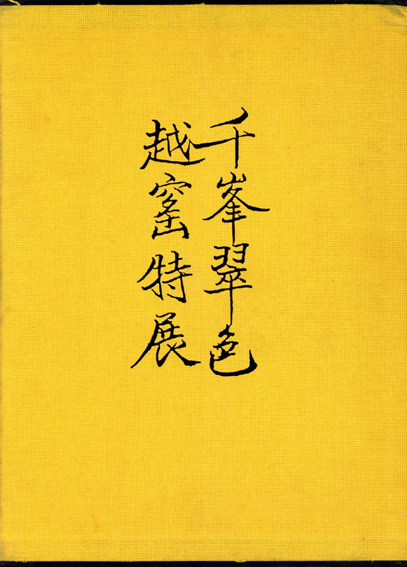 千峯翠色
越窑特展